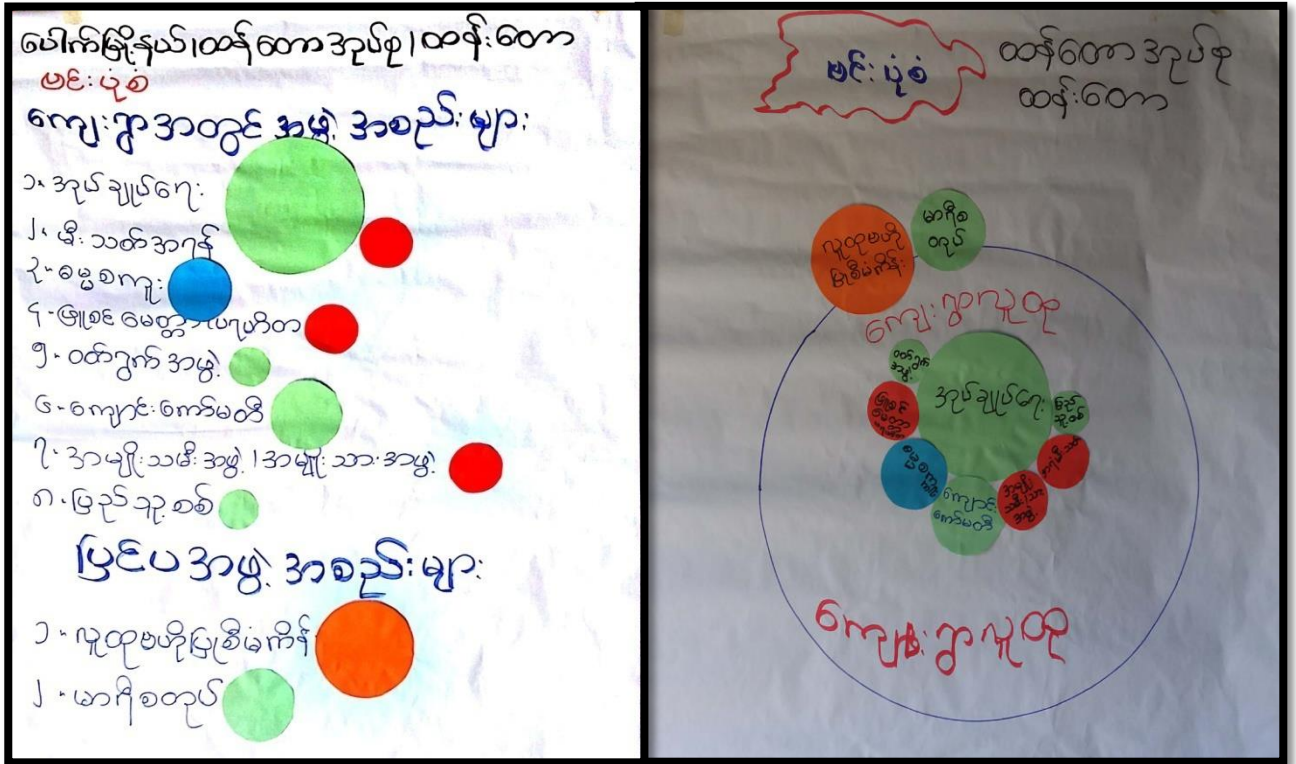 ပေါက်မြို့နယ်၊ထန်တောအုပ်စု၊ထန်းတော
ဗင်းပုံစံ
ကျေးရွာအတွင်း အဖွဲ့ အစည်းများ
၁. အုပ်ချုပ်ရေး
၂. မီးသတ်အရန်
၃. ဓမ္မစကူး
၄. ဖြူစင်မေတ္တာပရဟိတ
၅. ဝတ်ရွတ်အဖွဲ့
၆. ကျောင်းကော်မတီ
၇. အမျိုးသမီးအဖွဲ့၊အမျိုးသားအဖွဲ့
၈. ပြည်သူ့စစ်
ပြင်ပအဖွဲ့ အစည်းများ
၁. လူထုဗဟိုပြုစီမံကိန်း
၂. မာရီစတုပ်
ဗင်းပုံစံ
ထန်တောအုပ်စု
ထန်းတော
မာရီစ
တုပ်
လူထုဗဟို
ပြုစီမံကိန်း
ကျေးရွာလူထု
ဝတ်ရွတ်
အဖွဲ့
အုပ်ချုပ်ရေး
ပြည်
သူ့စစ်
ဖြူစင်
မေတ္တာ
ဓမ္မစကူး
ကျောင်း
ကော်မတီ
အမျိုး
သမီး/သား
အဖွဲ့
ကျေးရွာလူထု